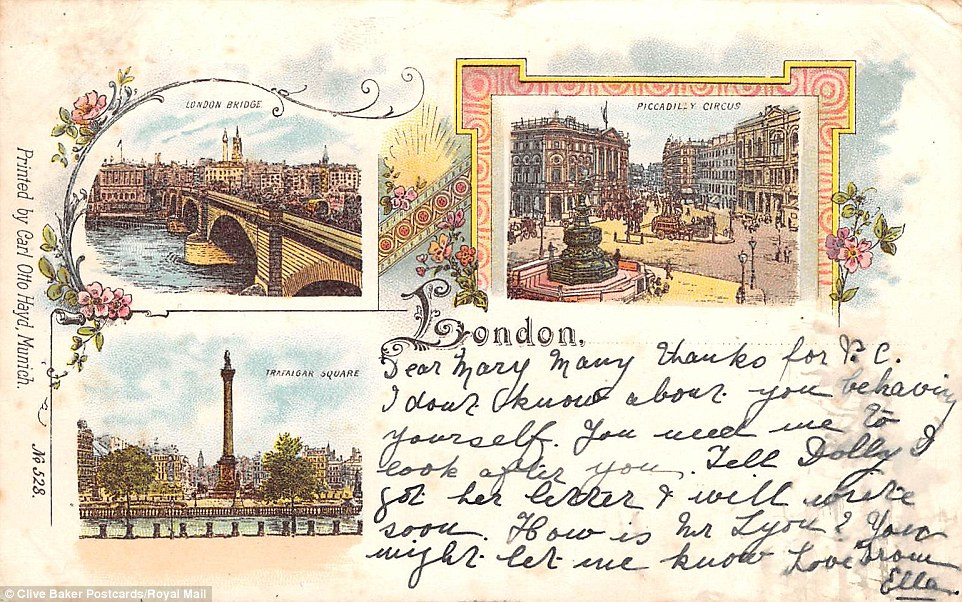 LONDON BRIDGE
PICCADILLY CIRCUS
TRAFALGAR SQUARE
Printed by Carl Otto Hayd, Munich.
No 528.
London,
Dear Mary Many thanks for P.C.
I dont know about you behaving
yourself. You need me to
look after you. Tell Dolly I
got her letter & will write
soon. How is Mr Lyon? You
might let me know Love from
Ella
© Clive Baker Postcards/Royal Mail